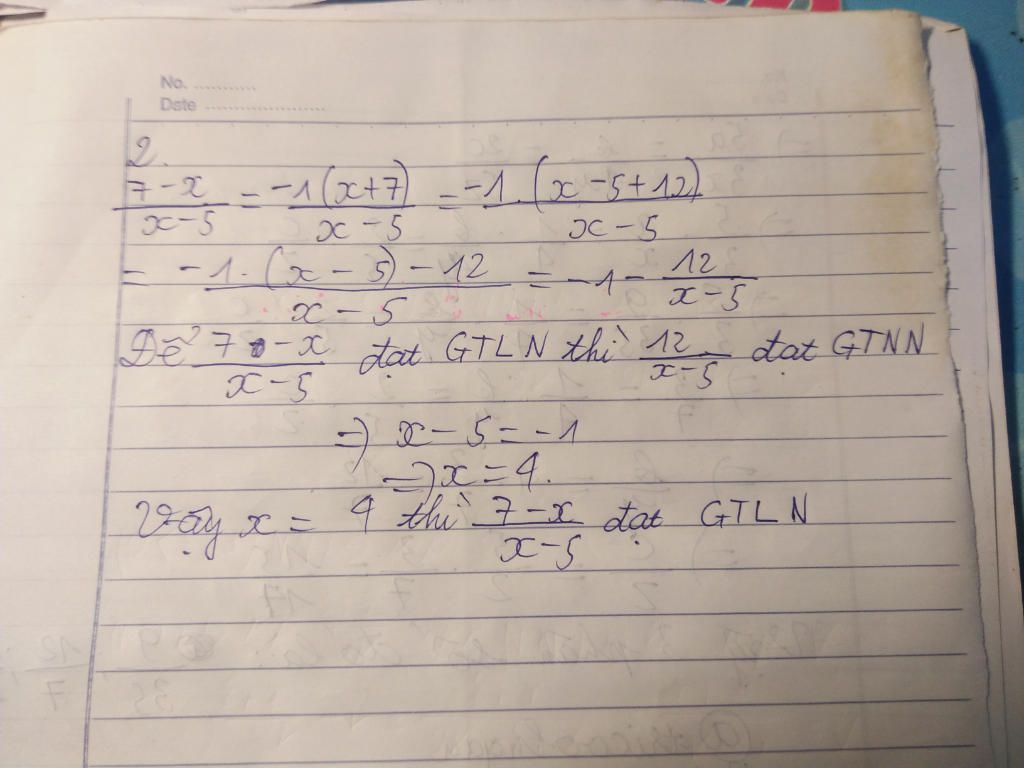 No. ............
Date ......................
2.
7-x/x-5 = -1(x+7)/x-5 = -1.(x-5+12)/x-5
= -1.(x-5)-12/x-5 = -1 - 12/x-5
Để 7-x/x-5 đạt GTLN thì 12/x-5 đạt GTNN
=) x-5=-1
=) x=4.
Vậy x = 4 thì 7-x/x-5 đạt GTLN